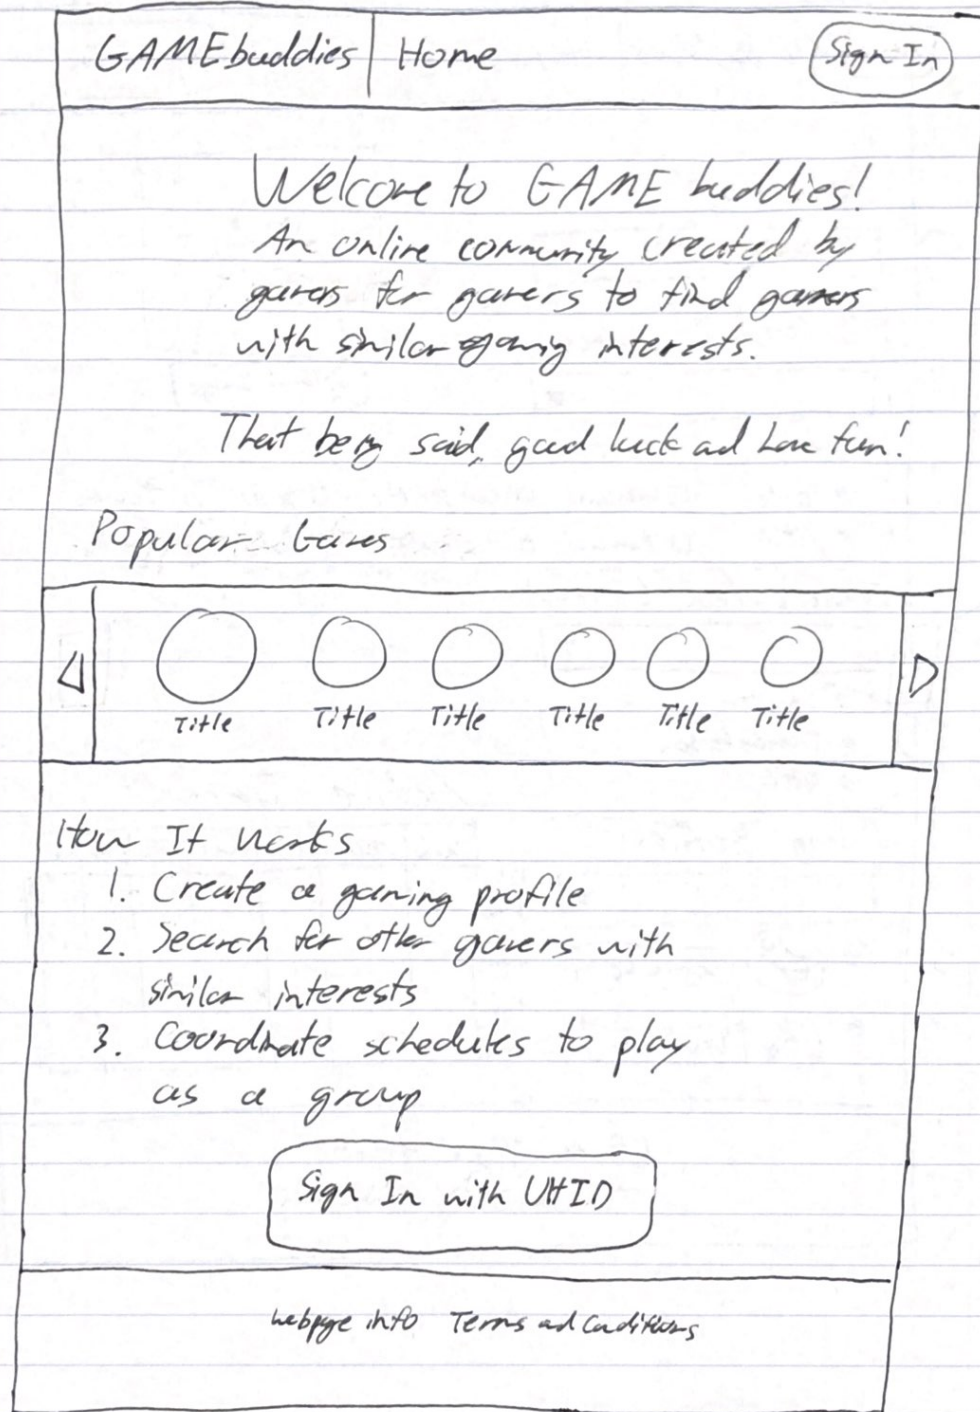 GAMEbuddies | Home Sign In
Welcome to GAME buddies!
An online community created by
gamers for gamers to find gamers
with similar gaming interests.
That being said, good luck and have fun!
Popular Games
Title Title Title Title Title Title
How It Works
1. Create a gaming profile
2. Search for other gamers with
similar interests
3. Coordinate schedules to play
as a group
Sign In with UHID
webpage info Terms and Conditions